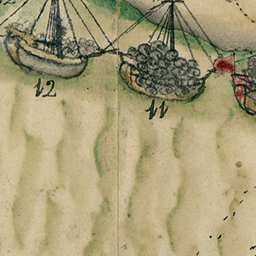 12 11